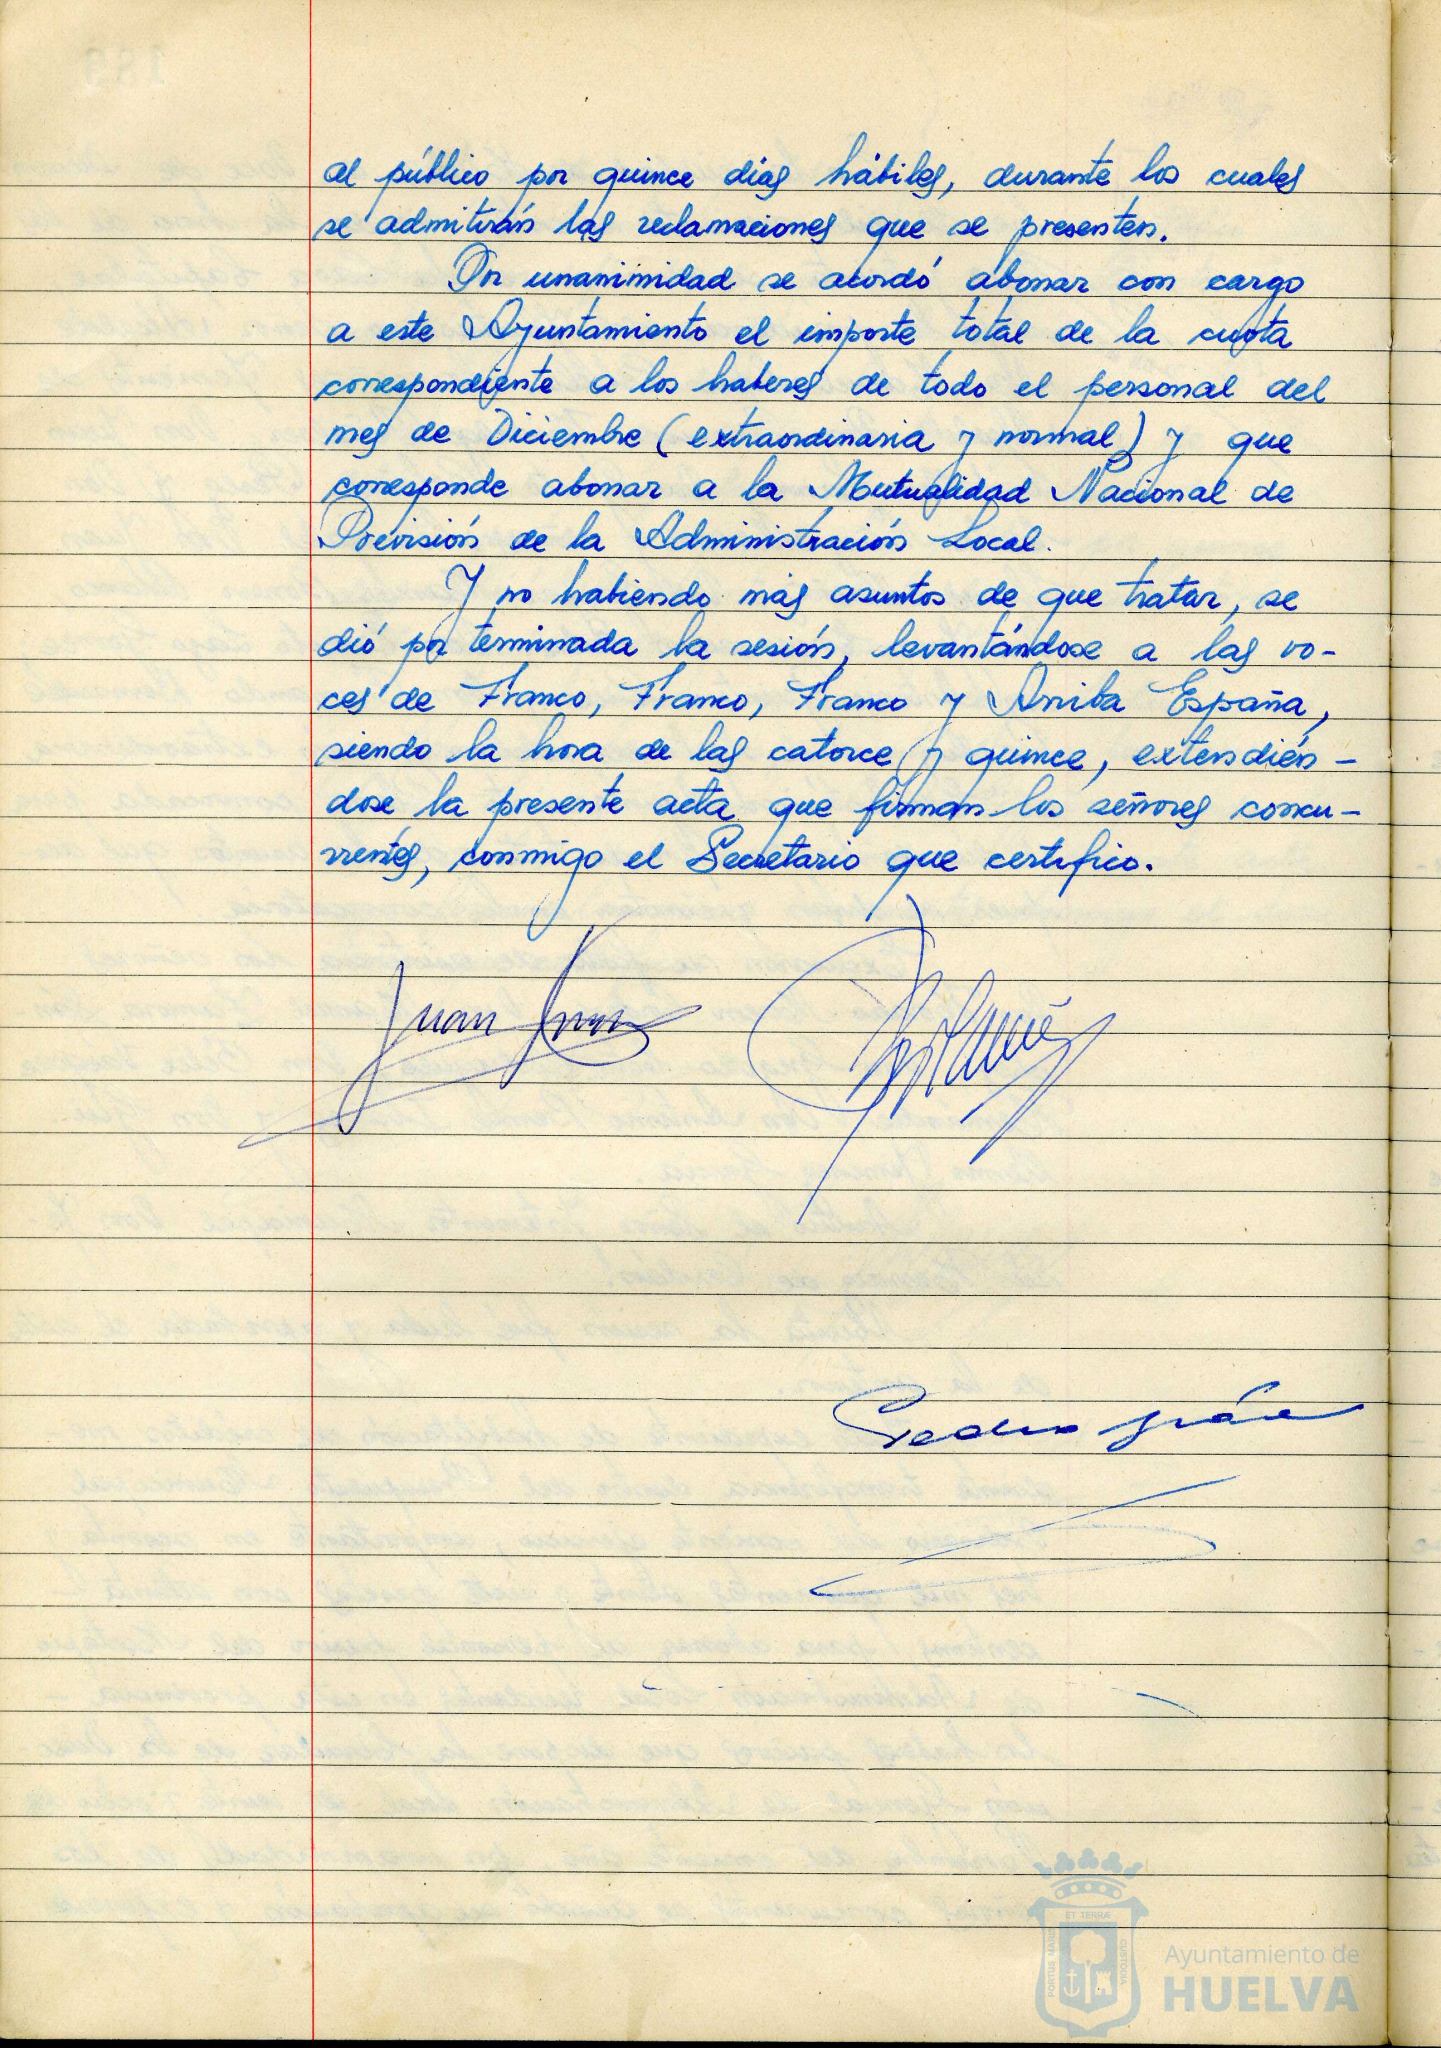 al público por quince días hábiles, durante los cuales
se admitirán las reclamaciones que se presenten.
Por unanimidad se acordó abonar con cargo
a este Ayuntamiento el importe total de la cuota
correspondiente a los haberes de todo el personal del
mes de Diciembre (extraordinaria y normal) y que
corresponde abonar a la Mutualidad Nacional de
Previsión de la Administración Local.
Y no habiendo más asuntos de que tratar, se
dió por terminada la sesión, levantándose a las vo-
ces de Franco, Franco, Franco y Arriba España,
siendo la hora de las catorce y quince, extendién-
dose la presente acta que firman los señores concu-
rrentes, conmigo el Secretario que certifico.
Juan
Pedro
ET TERRÆ
PORTUS MARIS
CUSTODIA
Ayuntamiento de
HUELVA